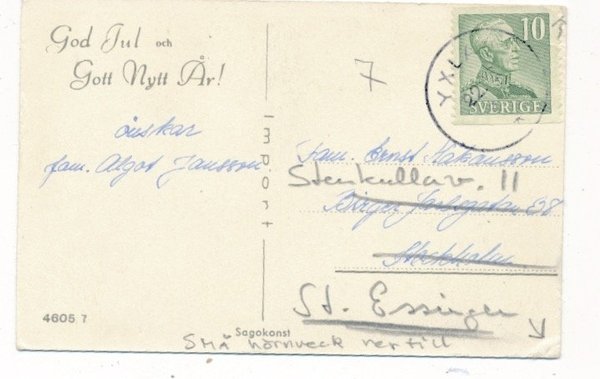 God Jul och
Gott Nytt År!
önskar
fam. Algot Jansson
4605 7
Import
Sagokonst
7
10
SVERIGE
YXL
22
Fam. Ernst Håkansson
Stenkullav. 11
Birger Jarlsgatan 38
Stockholm
St. Essingen
små hörnveck nertill